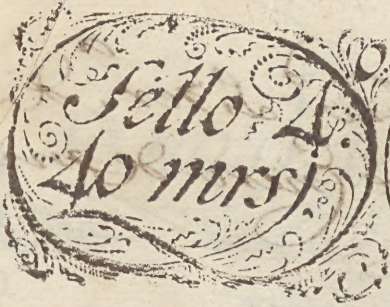 Sello 4.
40 mrs).